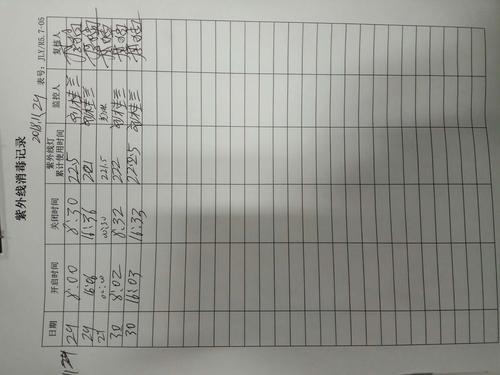 紫外线消毒记录
2018.11.29 表号: JLY/R5.7-05
日期 开启时间 关闭时间 紫外线灯累计使用时间 监控人 复核人
29 8:00 8:30 22.5 刘桂兰
29 16:06 16:36 221 刘桂兰
29 00:00 00:30 221.5
30 8:02 8:32 222 刘桂兰
30 16:03 16:33 222.5 刘桂兰